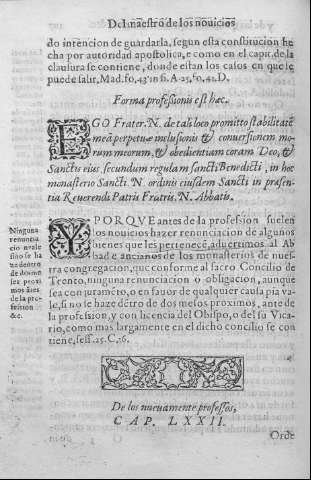 Del maestro de los nouicios
do intencion de guardarla, segun esta constitucion he
cha por autoridad apostolica, e como en el capit. de la
clausura se contiene, donde estan los casos en que se
puede salir, Mad. fo, 43. in fi. A. 25, fo, 41. D.
Forma professionis est hæc.
EGO Frater. N. de tali loco promitto stabilitatẽ
meã perpetuæ inclusionis & conuersionem mo-
rum meorum, & obedientiam coram Deo, &
Sanctis eius secundum regulam sancti Benedicti, in hoc
monasterio Sancti N. ordinis eiusdem Sancti in præsen-
tia Reuerendi Patris Fratris. N. Abbatis.
Y PORQVE antes de la profession suelen
los nouicios hazer renunciacion de algunos
bienes que les pertenecẽ, aduertimos al Ab
bad e ancianos de los monasterios de nues-
tra congregacion, que conforme al sacro Concilio de
Trento, ninguna renunciacion o obligacion, aunque
sea con juramẽto, o en fauor de qualquier causa pia va-
le, si no se haze dẽtro de dos meses proximos, ante de
la profession, y con licencia del Obispo, o del su Vica-
rio, como mas largamente en el dicho concilio se con
tiene, sess. 25. C, 16.
Ninguna
renuncia
cio vale
sino se ha
ze dentro
de dos me
ses proxi
mos ãtes
de la pro-
fession
&c.
De los nueuamente professos,
CAP. LXXII.
Orde